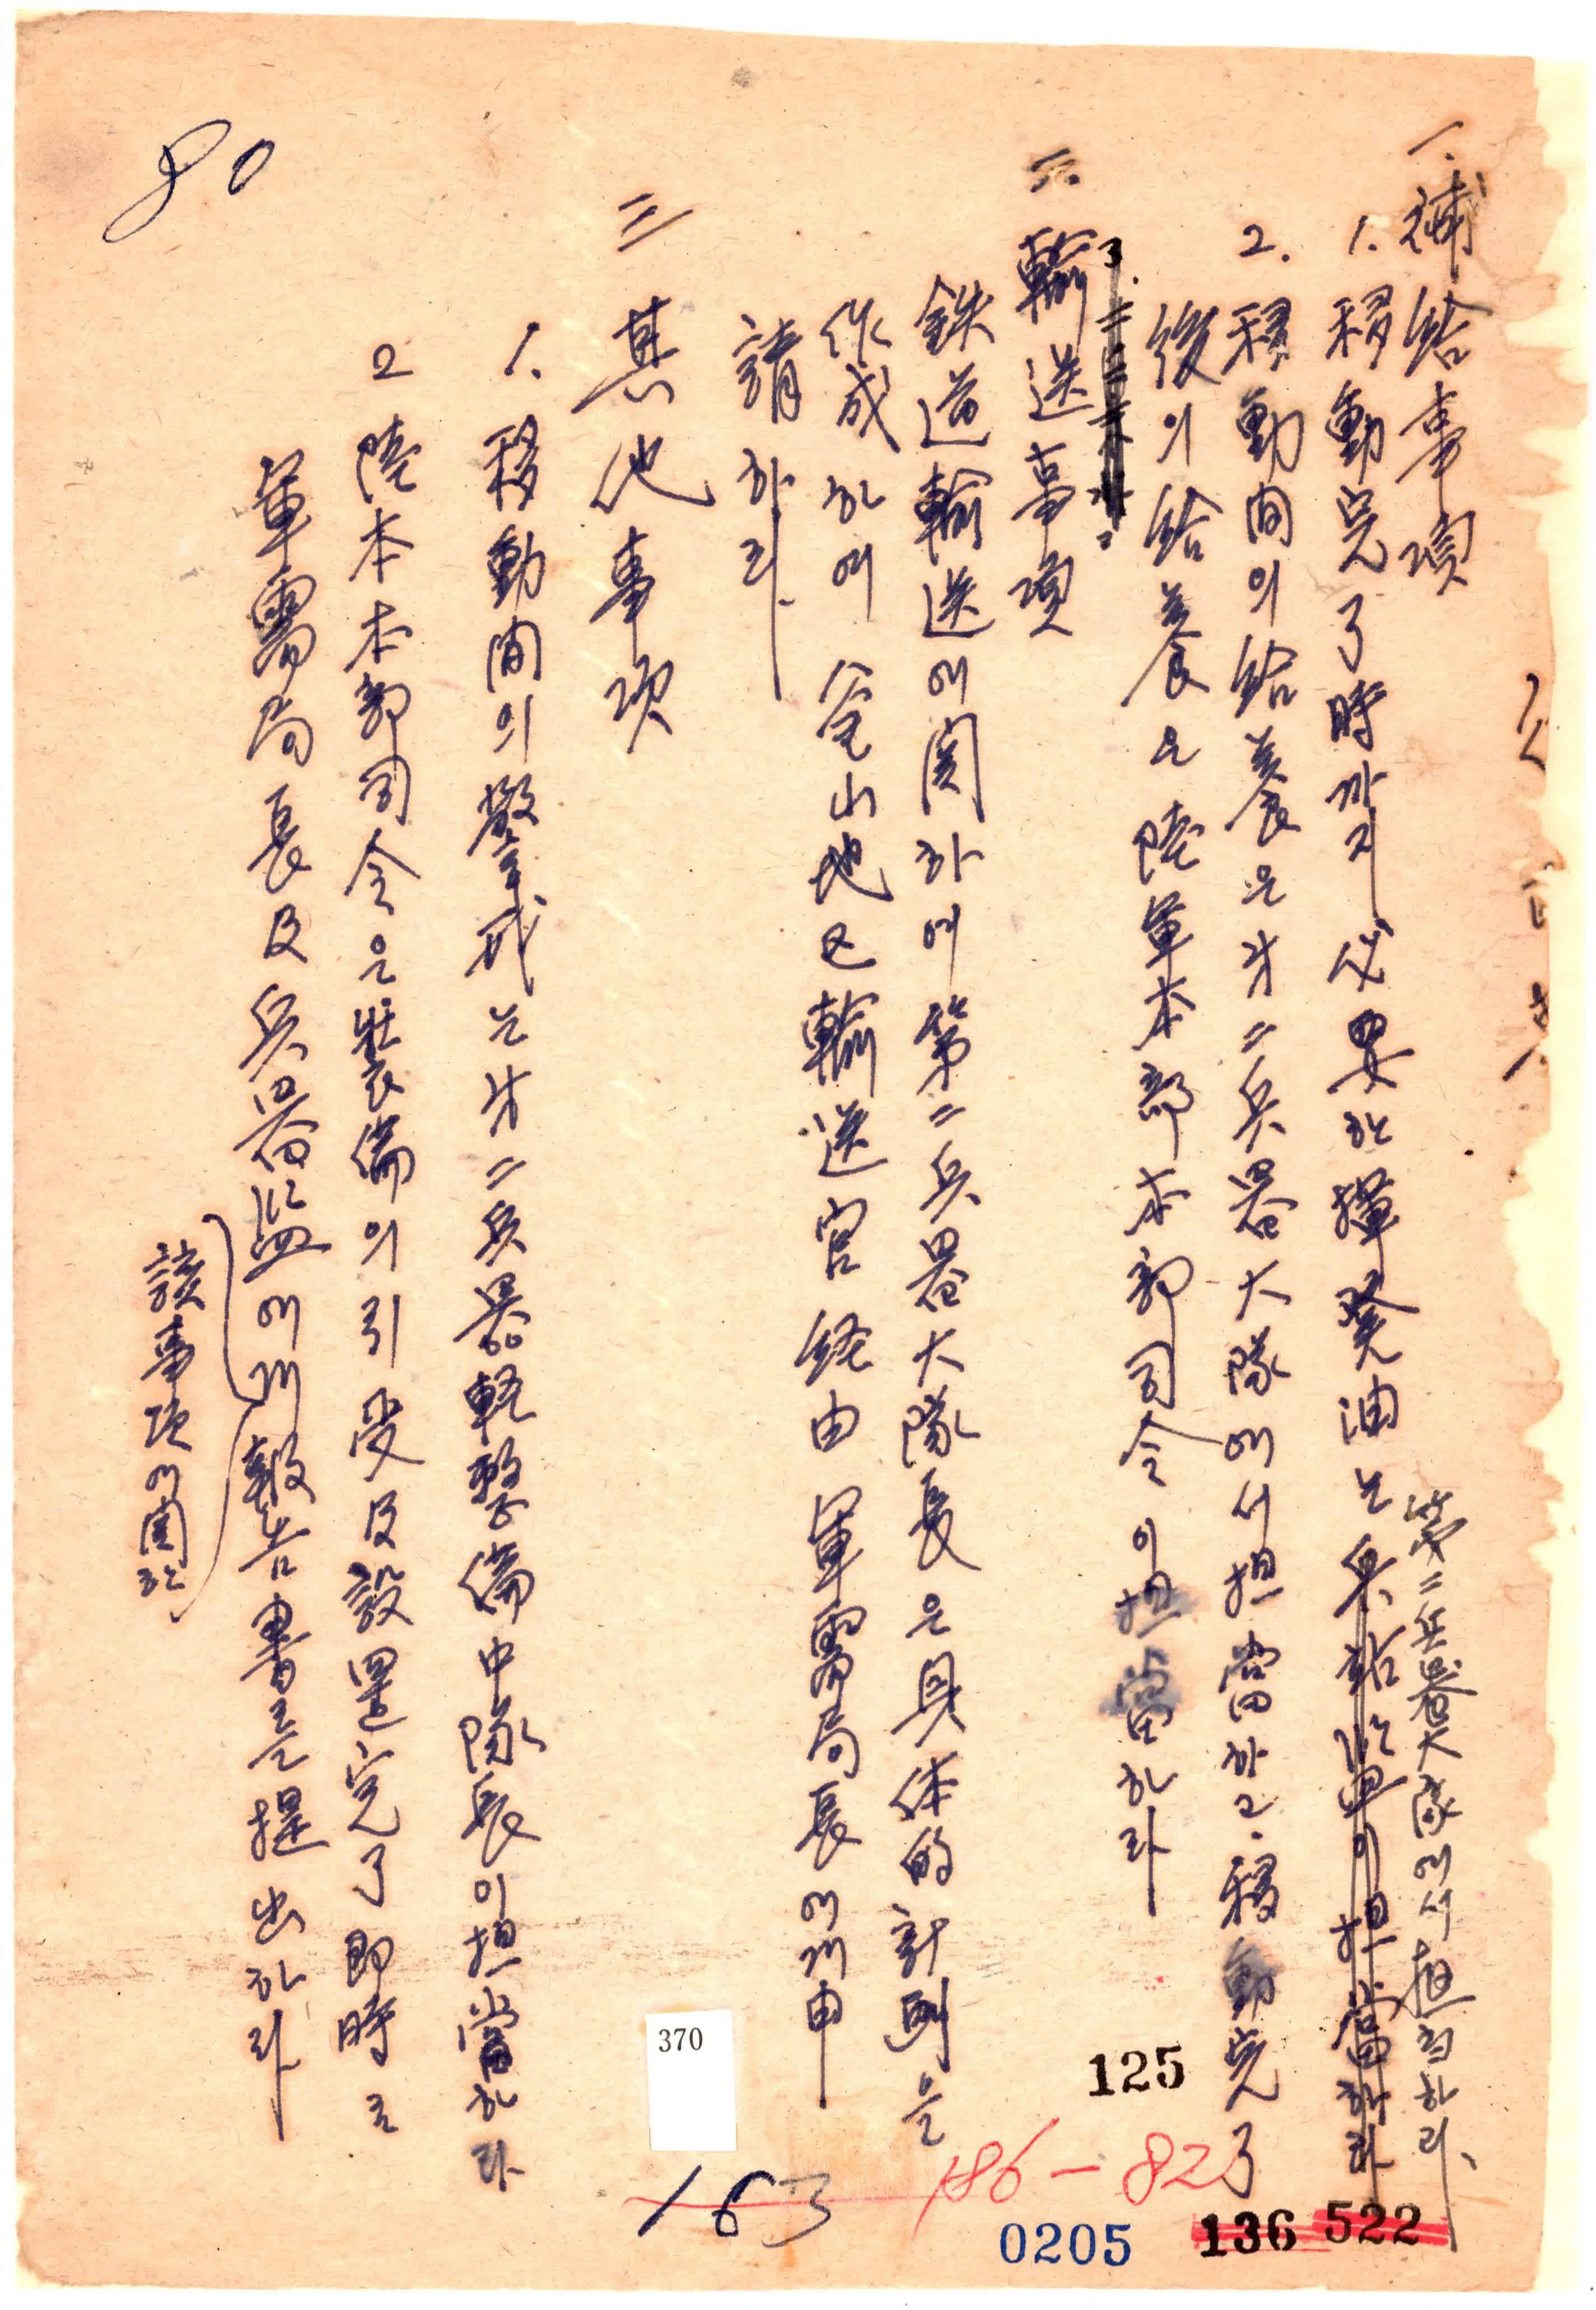 一. 補給事項
1. 移動完了時까지 必要한 揮發油는 兵站監이 担當하라
第二兵器大隊에서 担当하라.
2. 移動間의 給養은 才二兵器大隊에서 担當하고. 移動完了
後의 給養은 陸軍本部 本部司令이 担當하라
3.
二. 輸送事項
鉄道輸送에 関하여 第二兵器大隊長은 具体的 計画을
作成하여 釜山地区 輸送官 経由 軍需局長에게 申
請하라.
三 其他事項
1. 移動間의 警戒는 才二兵器軽整備中隊長이 担當하라
2 陸本 本部司令은 装備의 引受 及 設置完了 即時로
軍需局長 及 兵器監에게 報告書를 提出하라
該事項에 関한
80
370
125
186-82
163
0205
136 522